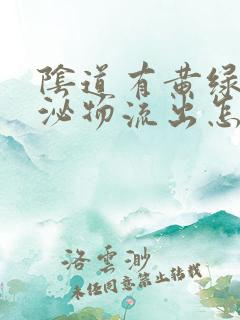 陰道有黄绿
泌物流出怎
洛雲渺
未经同意禁止转载